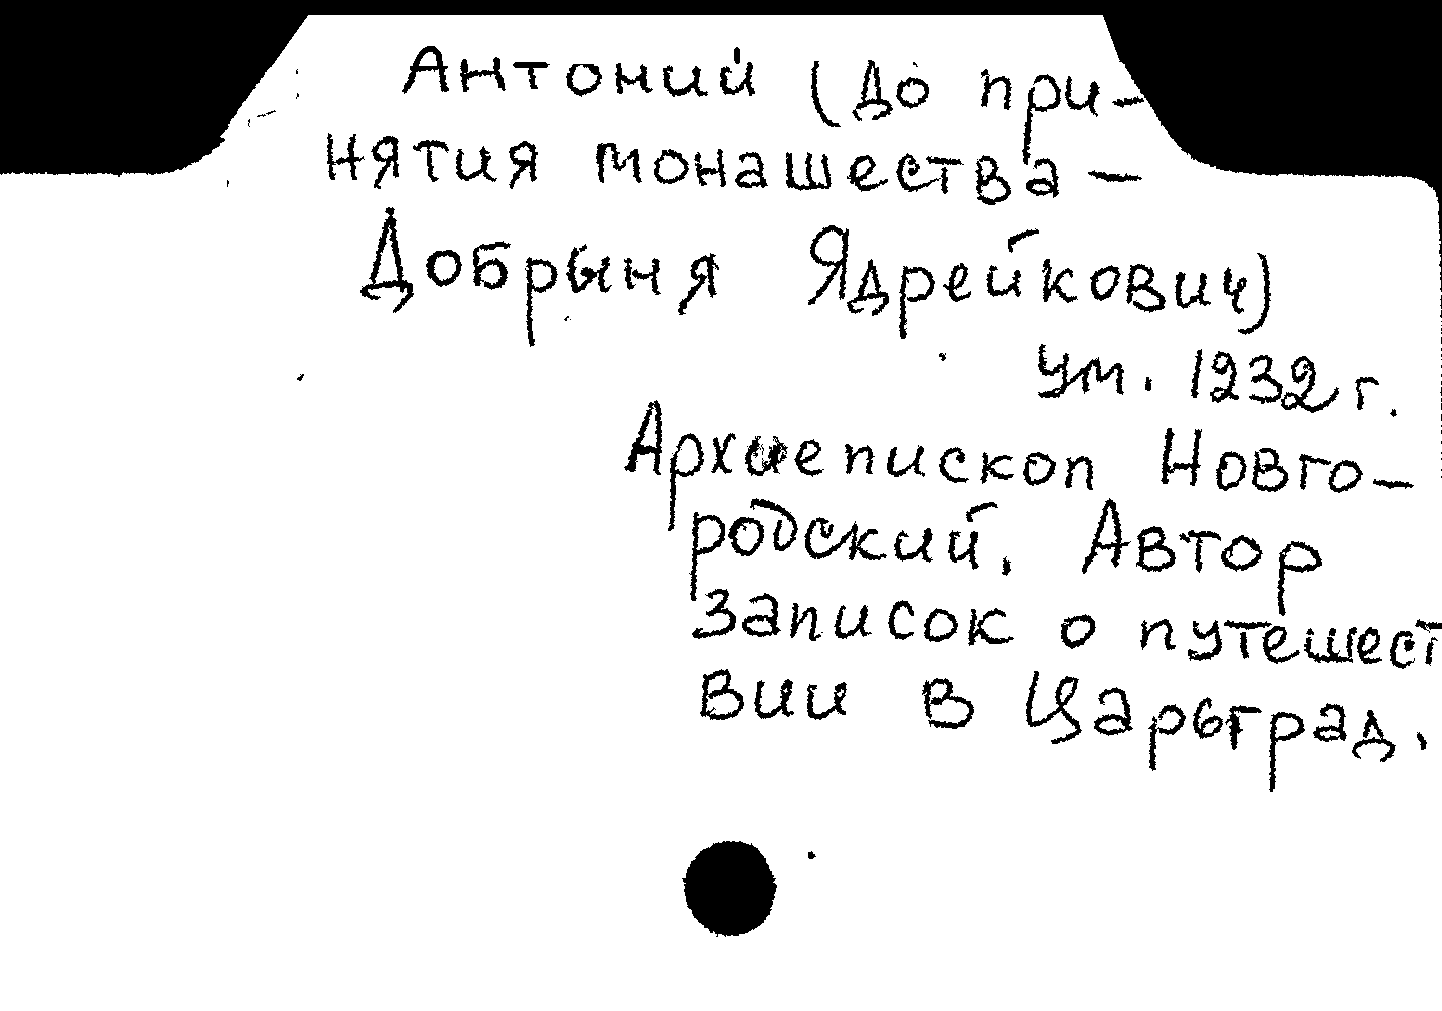 Антоний (до при-
нятия монашества —
Добрыня Ядрейкович)
ум. 1232 г.
Архиепископ Новго-
родский. Автор
записок о путешест
вии в Царьград.